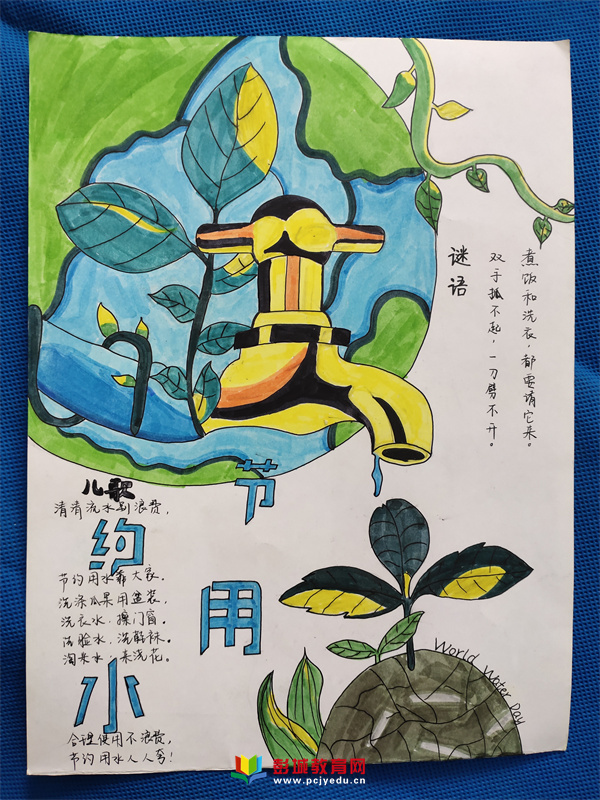 谜语
煮饭和洗衣，都要请它来。
双手抓不起，一刀劈不开。
儿歌
清清流水别浪费，
节约用水
节约用水靠大家。
洗涤瓜果用盆装，
洗衣水，擦门窗。
洗脸水，洗鞋袜。
淘米水，来浇花。
合理使用不浪费，
节约用水人人夸！
World Water Day
彭城教育网
www.pcjyedu.cn